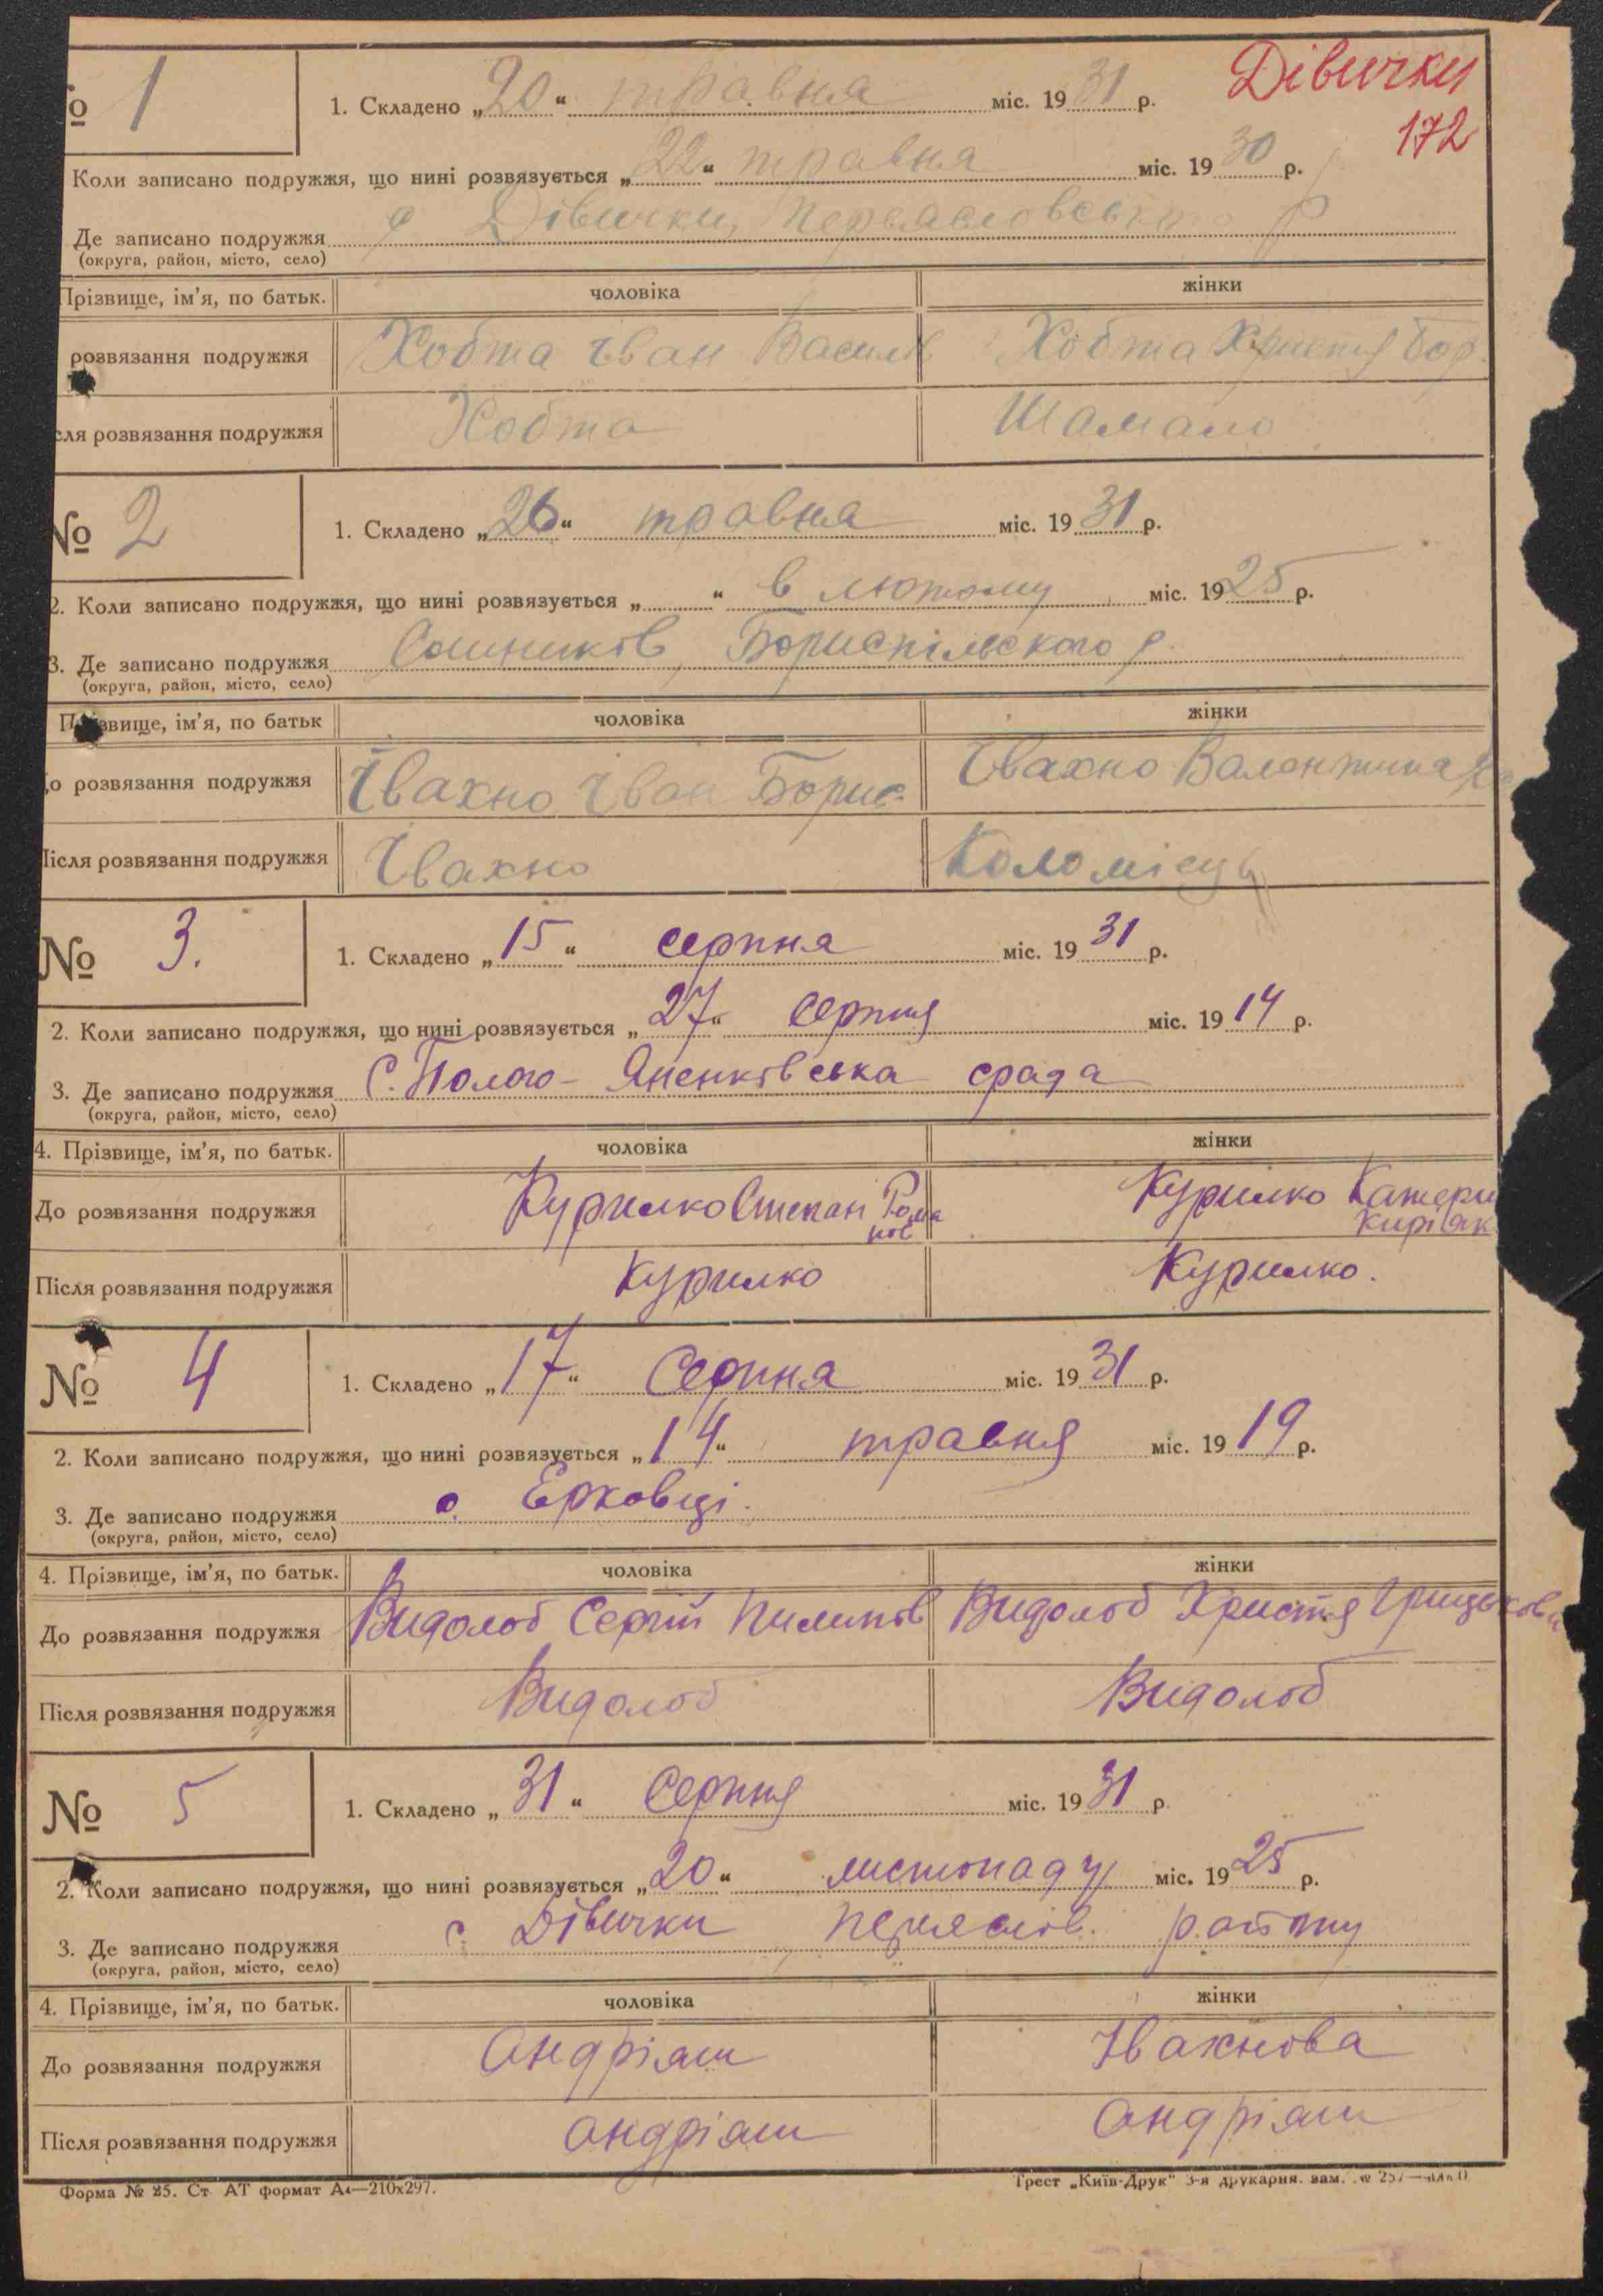 Дівички
172
№ 1
1. Складено „20“ травня міс. 1931 р.
Коли записано подружжя, що нині розвязується „22“ травня міс. 1930 р.
Де записано подружжя с Дівички, Переяславського р
(округа, район, місто, село)
Прізвище, ім’я, по батьк. чоловіка жінки
розвязання подружжя Хобта Іван Васил Хобта Христя
сля розвязання подружжя Хобта Шамало
№ 2
1. Складено „26“ травня міс. 1931 р.
2. Коли записано подружжя, що нині розвязується „ “ в лютому міс. 1925 р.
3. Де записано подружжя Сошників, Бориспільского р.
(округа, район, місто, село)
Прізвище, ім’я, по батьк чоловіка жінки
о розвязання подружжя Івахно Іван Борис Івахно Валентина
Після розвязання подружжя Івахно Коломієць
№ 3.
1. Складено „15“ серпня міс. 1931 р.
2. Коли записано подружжя, що нині розвязується „27“ серпня міс. 1914 р.
3. Де записано подружжя С. Полого-Яненківська срада
(округа, район, місто, село)
4. Прізвище, ім’я, по батьк. чоловіка жінки
До розвязання подружжя Курилко Степан Романов Курилко Катери Киріяк
Після розвязання подружжя Курилко Курилко.
№ 4
1. Складено „17“ Серпня міс. 1931 р.
2. Коли записано подружжя, що нині розвязується „14“ травня міс. 1919 р.
3. Де записано подружжя с. Ерковці.
(округа, район, місто, село)
4. Прізвище, ім’я, по батьк. чоловіка жінки
До розвязання подружжя Видолоб Сергій Пилипов Видолоб Христя Грицькова
Після розвязання подружжя Видолоб Видолоб
№ 5
1. Складено „31“ Серпня міс. 1931 р.
2. Коли записано подружжя, що нині розвязується „20“ листопаду міс. 1925 р.
3. Де записано подружжя с. Дівички Переяслів. району
(округа, район, місто, село)
4. Прізвище, ім’я, по батьк. чоловіка жінки
До розвязання подружжя Андріяш Івахнова
Після розвязання подружжя Андріяш Андріяш
Форма № 25. Ст АТ формат А4—210х297. Трест „Київ-Друк“ 3-я друкарня. зам. № 257